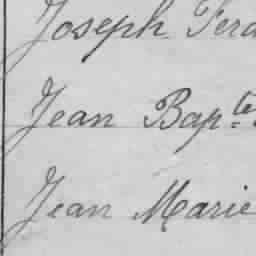 Joseph Ferd
Jean Bapte.
Jean Marie